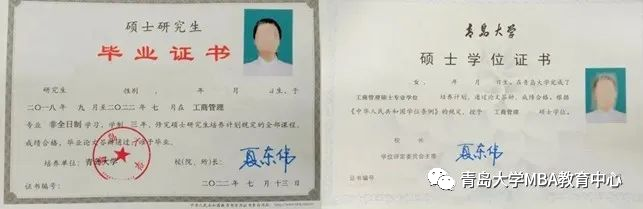 硕士研究生
毕业证书
研究生 性别 , 年 月 日生,于
二〇一八年 九月至二〇二二年 七月在 工商管理
专业 非全日制学习,学制 三年,修完硕士研究生培养计划规定的全部课程,
成绩合格,毕业论文答辩通过,准予毕业。
培养单位: 青岛大学 校(院、所)长: 夏东伟
证书编号: 二〇二二年 七月十三日
青岛大学
硕士学位证书
女, 年 月 日生。在青岛大学完成了
工商管理硕士专业学位 培养计划,通过论文答辩,成绩合格。根据
《中华人民共和国学位条例》的规定,授予 工商管理 硕士学位。
校长
学位评定委员会主席 夏东伟
证书编号
青岛大学MBA教育中心